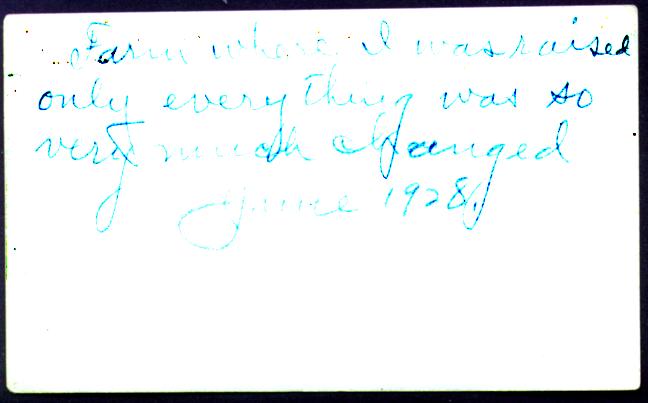 Farm where I was raised
only everything was so
very much changed
June 1928